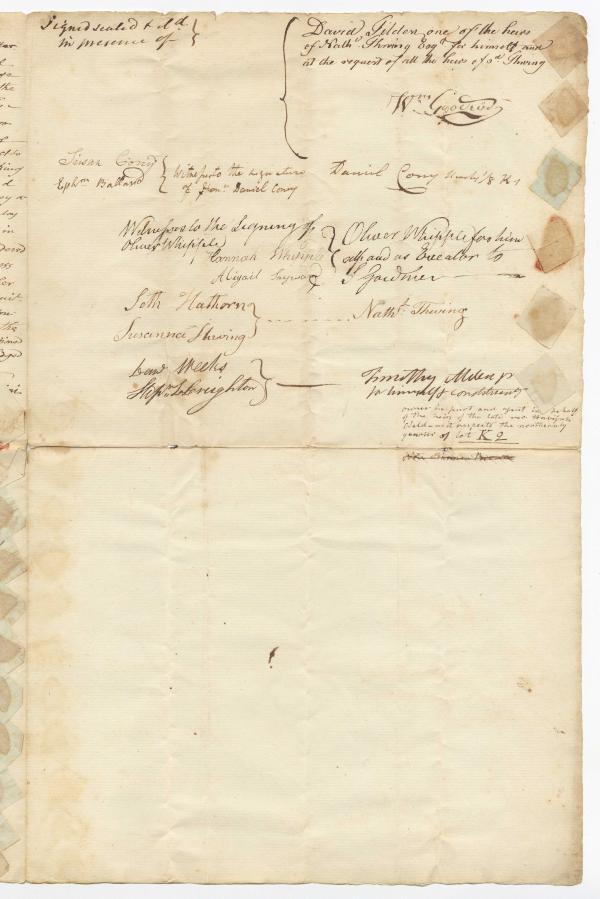 Signed sealed & dd
in presence of
David Tilden one of the heirs
of Nathl Thwing Esqr for himself and
at the request of all the heirs of sd Thwing
Wm
Susan Cony
Ephm Ballard
Witness to the signature
of Honl Daniel Cony
Daniel Cony
Witnesses to the Signing of
Oliver Whipple
Hannah Whipple
Abigail
Oliver Whipple for him
self and as Execator to
S Gardiner
Seth Hathorn
Susanna Thwing
Nathl Thwing
Weeks
Creighton
Timothy Alden
to himself
owner in part and agent in behalf
of the heirs of the late
Weld as it respects the northerly
quarter of lot K 2